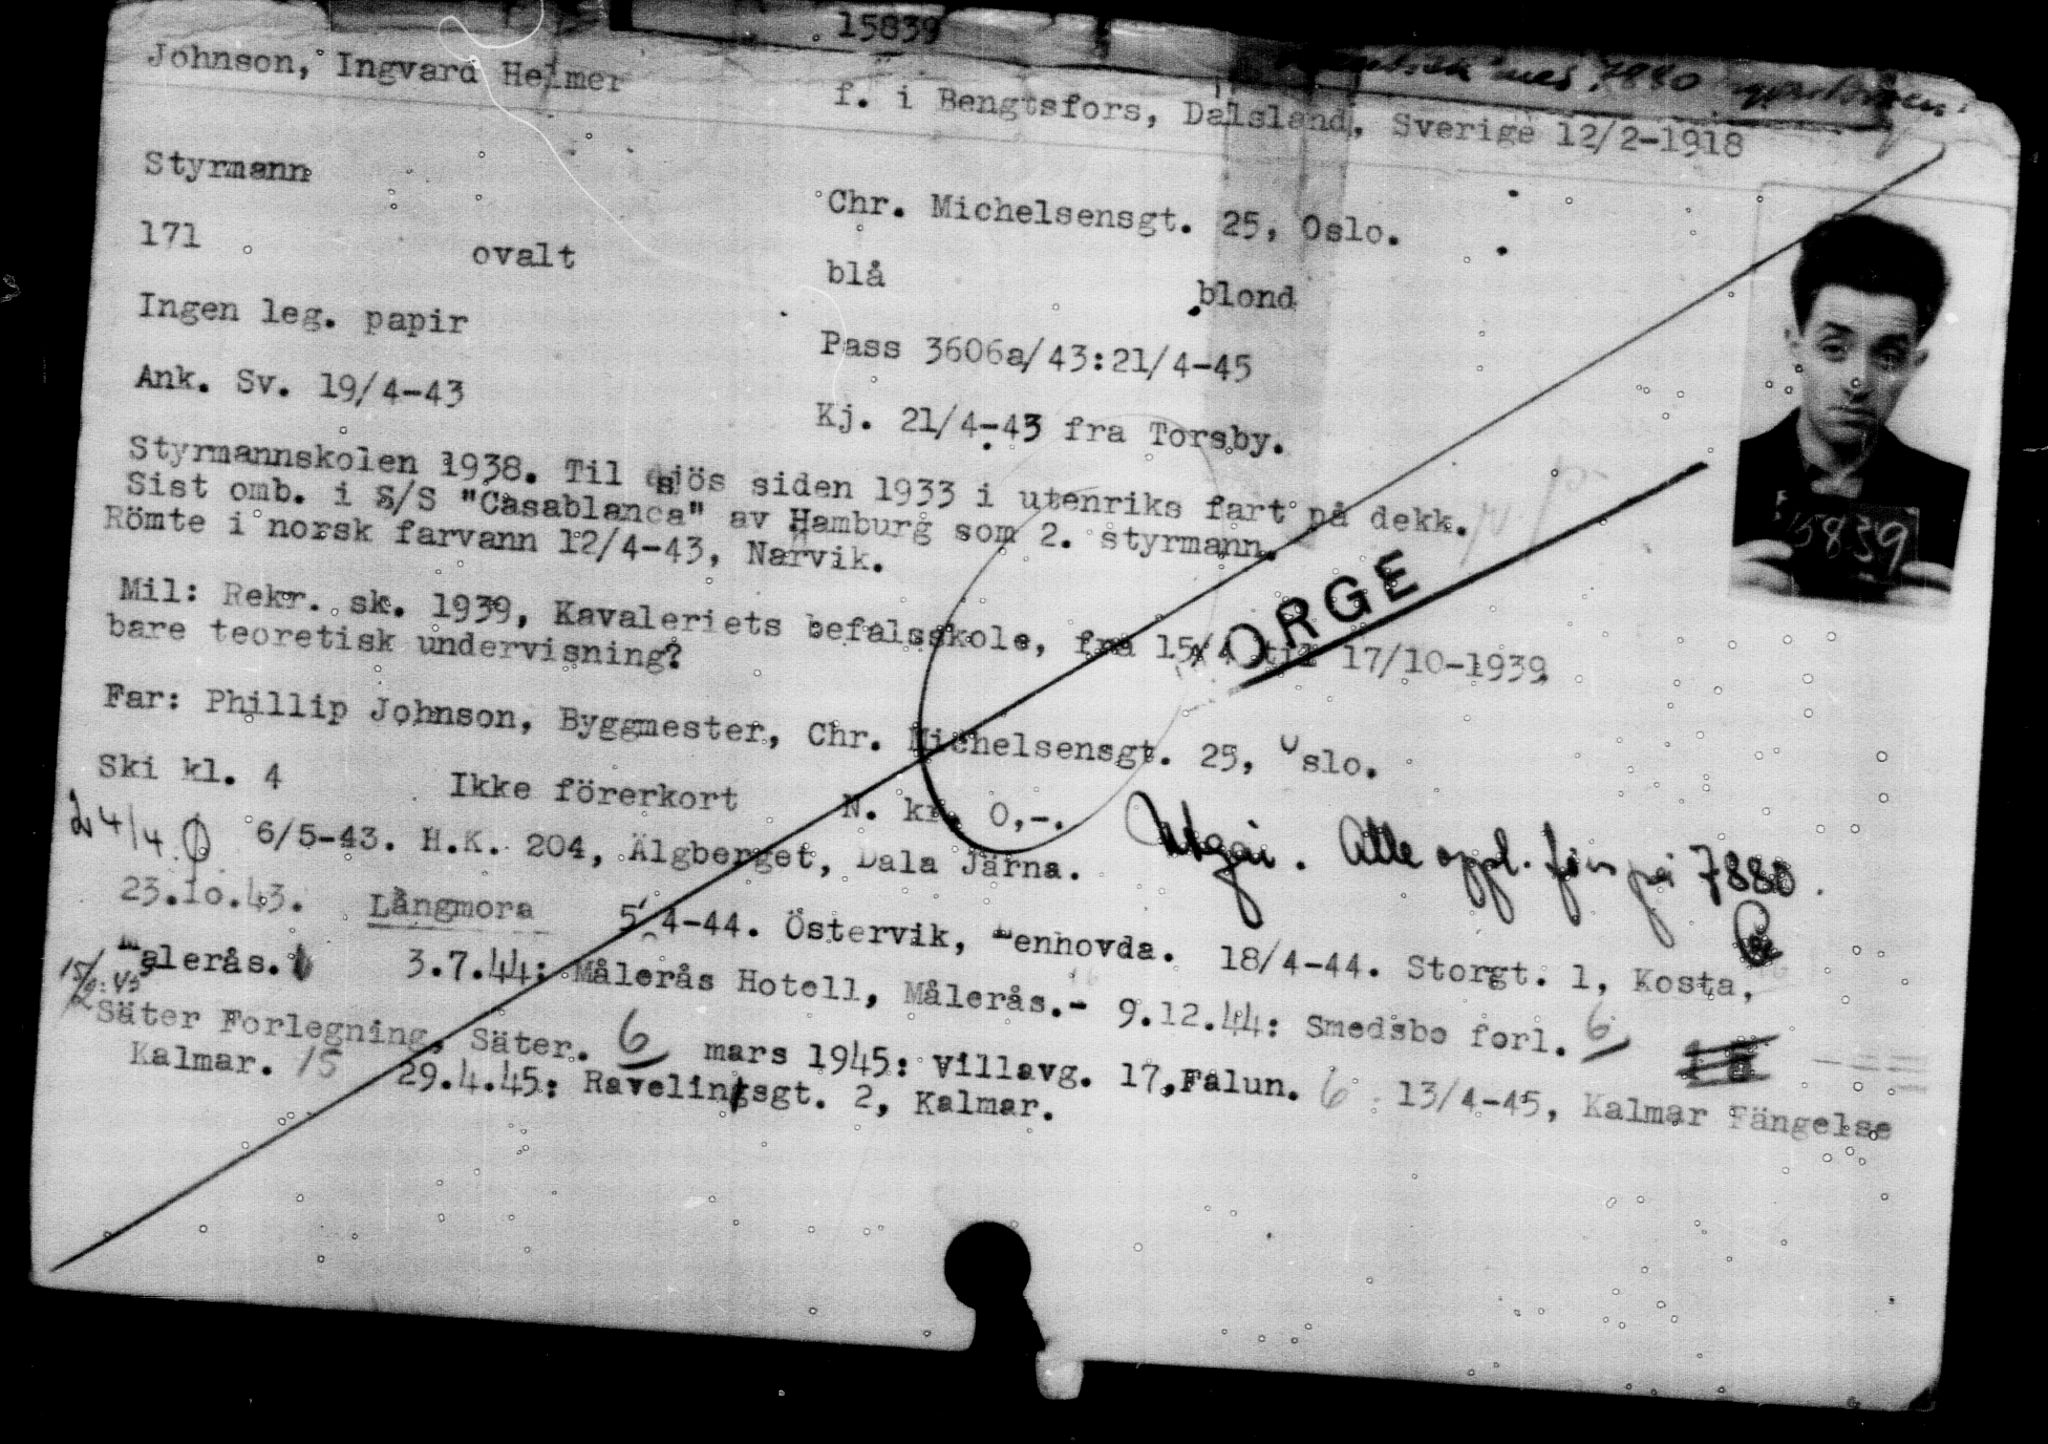 15839
Johnson, Ingvard Helmer f. i Bengtsfors, Dalsland, Sverige 12/2-1918
med 7880
Styrmann Chr. Michelsensgt. 25, Oslo.
171 ovalt blå blond
Ingen leg. papir Pass 3606a/43:21/4-45
Ank. Sv. 19/4-43 Kj. 21/4-43 fra Torsby.
Styrmannskolen 1938. Til sjös siden 1933 i utenriks fart på dekk.
Sist omb. i S/S "Casablanca" av Hamburg som 2. styrmann.
Römte i norsk farvann 12/4-43, Narvik.
15839
ORGE
Mil: Rekr. sk. 1939, Kavaleriets befalsskole, fra 15/4 til 17/10-1939
bare teoretisk undervisning?
Far: Phillip Johnson, Byggmester, Chr. Michelsensgt. 25, Oslo.
Ski kl. 4 Ikke förerkort N. kr. 0,-.
24/4 6/5-43. H.K. 204, Älgberget, Dala Järna. Utgår. Alle oppl. föres på 7880.
23.10.43. Långmora 5/4-44. Östervik, Lenhovda. 18/4-44. Storgt. 1, Kosta,
Målerås. 3.7.44: Målerås Hotell, Målerås.- 9.12.44: Smedsbo forl. 6
Säter Forlegning, Säter. 6 mars 1945: Villavg. 17, Falun. 6 13/4-45, Kalmar Fängelse
Kalmar. 15 29.4.45: Ravelingsgt. 2, Kalmar.